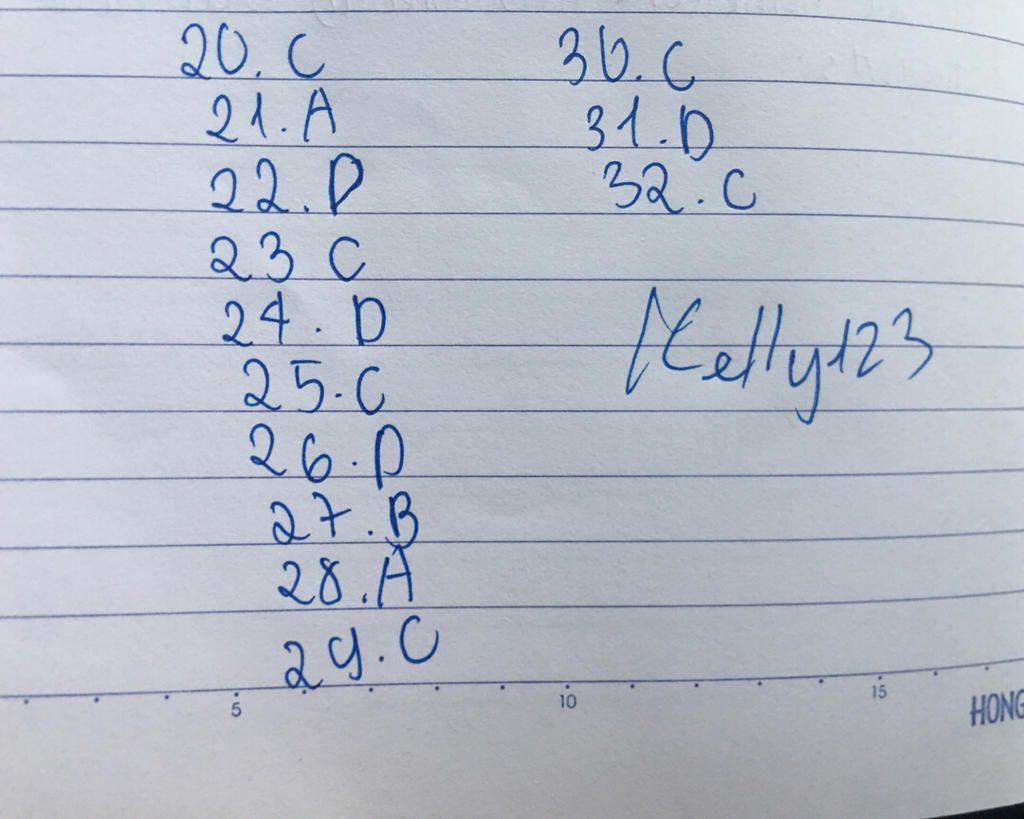 20. C
21. A
22. D
23 C
24. D
25. C
26. D
27. B
28. A
29. C
30. C
31. D
32. C
Kelly123
5 10 15
HONG